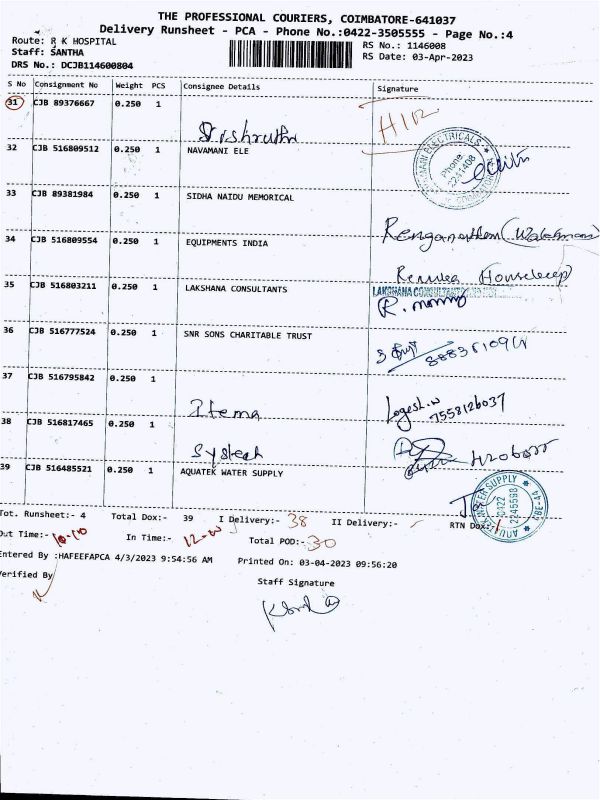 THE PROFESSIONAL COURIERS, COIMBATORE-641037
Delivery Runsheet - PCA - Phone No.:0422-3505555 - Page No.:4
Route: R K HOSPITAL
RS No.: 1146008
Staff: SANTHA
RS Date: 03-Apr-2023
DRS No.: DCJB114600804
S No Consignment No Weight PCS Consignee Details Signature
31 CJB 89376667 0.250 1
32 CJB 516809512 0.250 1 NAVAMANI ELE
Phone
2241408
33 CJB 89381984 0.250 1 SIDHA NAIDU MEMORICAL
34 CJB 516809554 0.250 1 EQUIPMENTS INDIA
35 CJB 516803211 0.250 1 LAKSHANA CONSULTANTS
36 CJB 516777524 0.250 1 SNR SONS CHARITABLE TRUST
37 CJB 516795842 0.250 1 Itema
Logesh.w
7558126037
38 CJB 516817465 0.250 1 Systech
39 CJB 516485521 0.250 1 AQUATEK WATER SUPPLY
0422
2245598
Tot. Runsheet:- 4 Total Dox:- 39 I Delivery:- 38 II Delivery:- - RTN Dox:- 1
Out Time:- 10-10 In Time:- Total POD:- 30
Entered By :HAFEEFAPCA 4/3/2023 9:54:56 AM Printed On: 03-04-2023 09:56:20
Verified By
Staff Signature